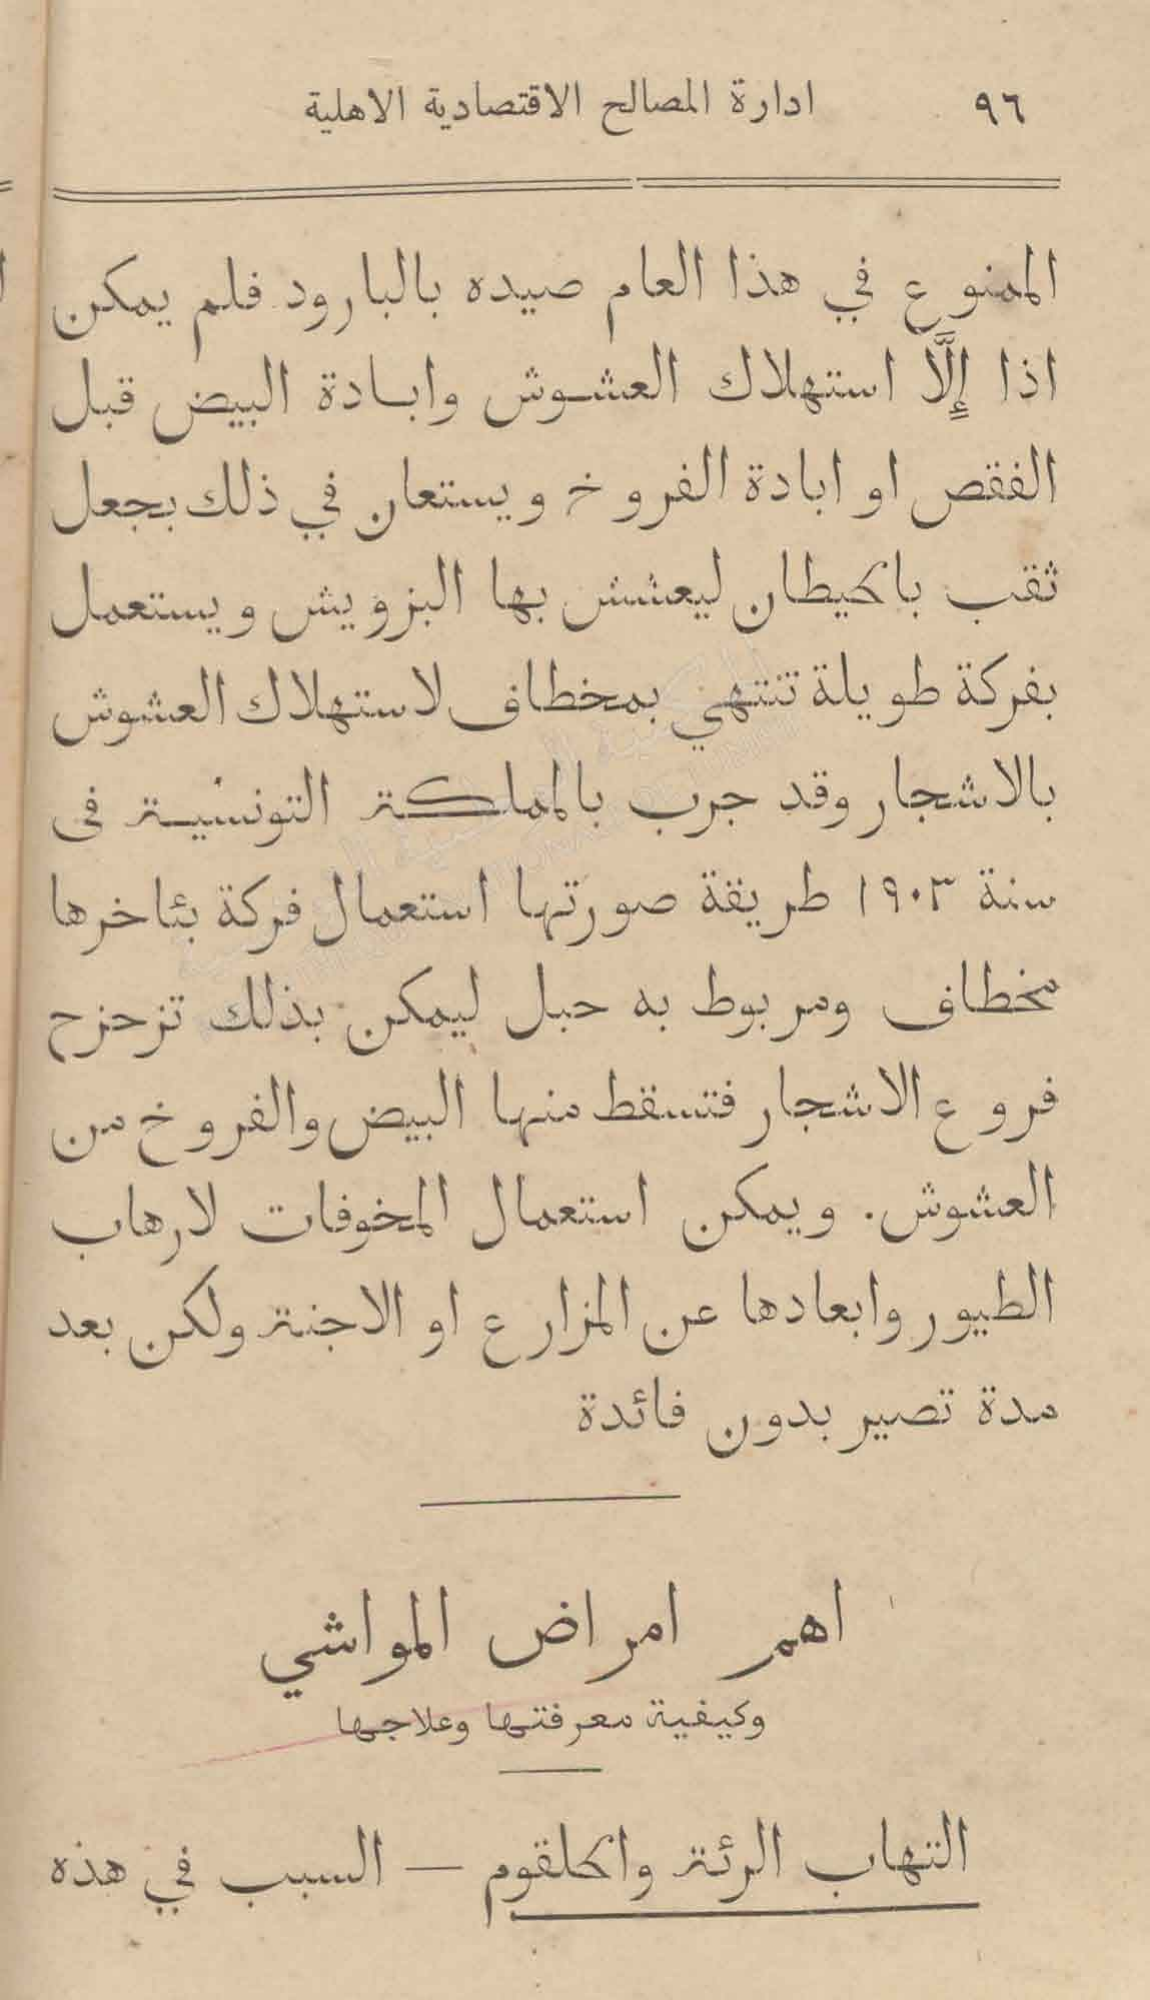 ٩٦ ادارة المصالح الاقتصادية الاهلية
الممنوع في هذا العام صيده بالبارود فلم يمكن
اذا إلَّا استهلاك العشوش وابادة البيض قبل
الفقص او ابادة الفروخ ويستعان في ذلك بجعل
ثقب بالحيطان ليعشش بها البزويش ويستعمل
بفركة طويلة تنتهي بمخطاف لاستهلاك العشوش
بالاشجار وقد جرب بالمملكة التونسية فى
سنة ١٩٠٣ طريقة صورتها استعمال فركة بئاخرها
مخطاف ومربوط به حبل ليمكن بذلك تزحزح
فروع الاشجار فتسقط منها البيض والفروخ من
العشوش. ويمكن استعمال المخوفات لارهاب
الطيور وابعادها عن المزارع او الاجنة ولكن بعد
مدة تصير بدون فائدة
اهم امراض المواشي
وكيفية معرفتها وعلاجها
التهاب الرئة والحلقوم — السبب في هذه